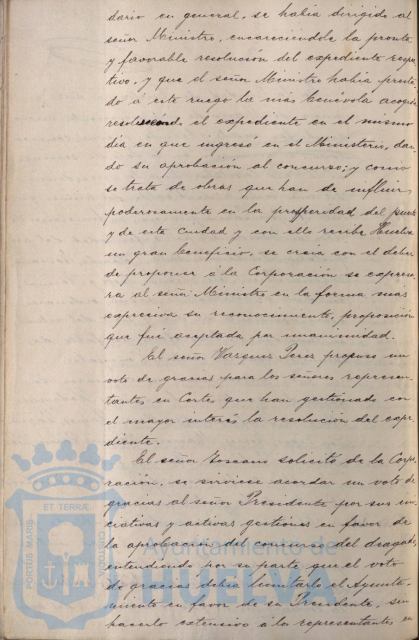 dario en general, se había dirigido al
señor Ministro, encareciéndole la pronta
y favorable resolución del expediente respec
tivo, y que el señor Ministro había presta
do á este ruego la más benévola acogida
el expediente en el mismo
día en que ingresó en el Ministerio, dan
do su aprobación al concurso; y como
se trata de obras que han de influir
poderosamente en la prosperidad del puerto
y de esta Ciudad y con ello recibe Huelva
un gran beneficio, se creía con el deber
de proponer á la Corporación se expresa
ra al señor Ministro en la forma más
expresiva su reconocimiento, proposición
que fué aceptada por unanimidad.
El señor Vazquez Perez propuso un
voto de gracias para los señores represen
tantes en Cortes que han gestionado con
el mayor interés la resolución del expe
diente.
El señor Toscano solicitó de la Corpo
ración, se sirviese acordar un voto de
gracias al señor Presidente por sus ini
ciativas y activas gestiones en favor de
la aprobación del concurso del dragado,
entendiendo por su parte que el voto
de gracias debía limitarlo el Ayunta
miento en favor de su Presidente, sin
hacerlo extensivo á los representantes en
PORTUS MARIS
ET TERRÆ
CUSTODIA
Ayuntamiento de
HUELVA